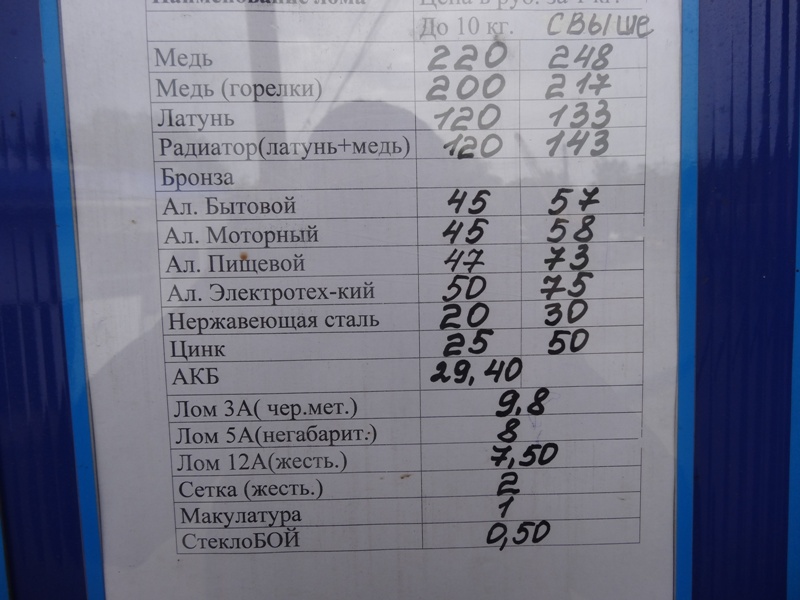 Наименование лома Цена в руб. за 1 кг.
До 10 кг. СВЫШЕ
Медь 220 248
Медь (горелки) 200 217
Латунь 120 133
Радиатор(латунь+медь) 120 143
Бронза
Ал. Бытовой 45 57
Ал. Моторный 45 58
Ал. Пищевой 47 73
Ал. Электротех-кий 50 75
Нержавеющая сталь 20 30
Цинк 25 50
АКБ 29,40
Лом 3А( чер.мет.) 9,8
Лом 5А(негабарит.) 8
Лом 12А(жесть.) 7,50
Сетка (жесть.) 2
Макулатура 1
СтеклоБОЙ 0,50